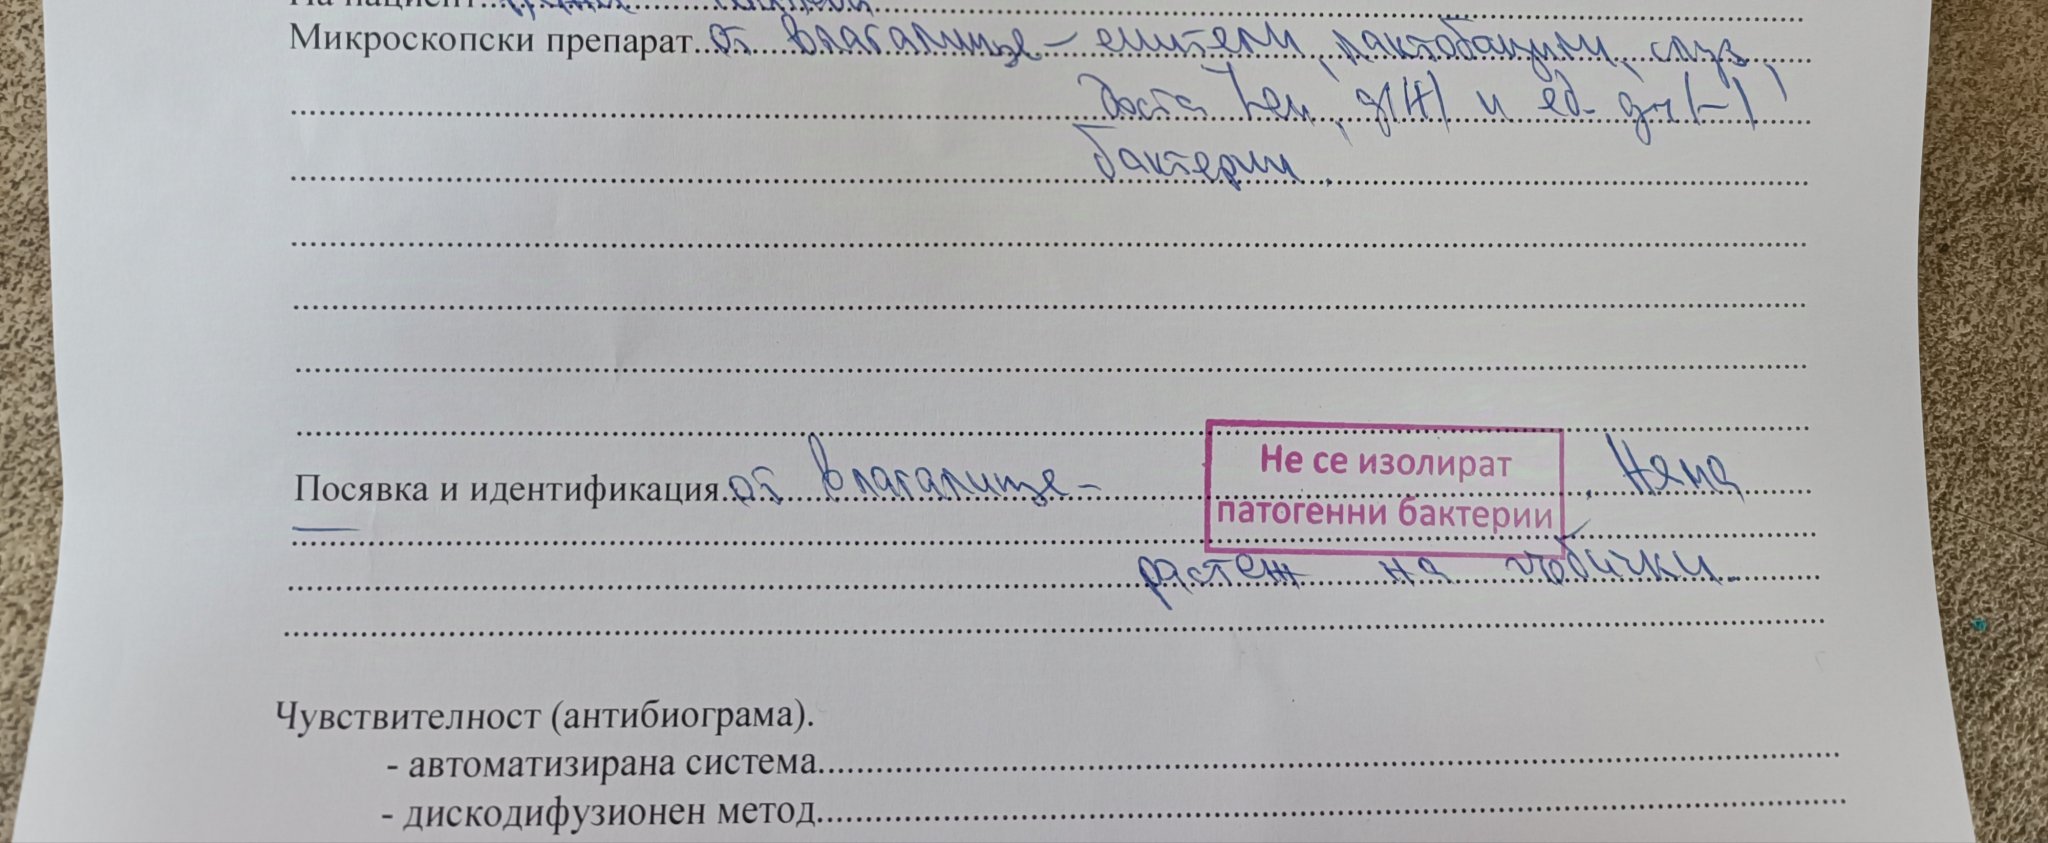 На пациент
Микроскопски препарат..от влагалище – епители, лактобацили, слуз,
доста Leu, g(+) и ед. gr(-)
бактерии.
Посявка и идентификация..от влагалище – Не се изолират патогенни бактерии. Няма
растеж на гъбички.
Чувствителност (антибиограма).
- автоматизирана система
- дискодифузионен метод